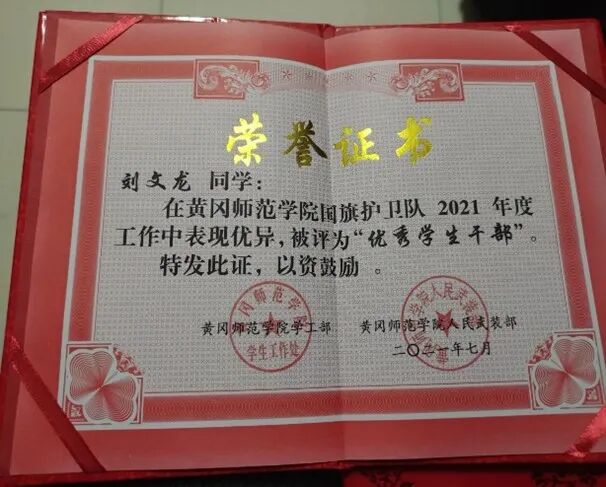 荣誉证书
刘文龙 同学：
在黄冈师范学院国旗护卫队 2021 年度
工作中表现优异，被评为“优秀学生干部”。
特发此证，以资鼓励 。
黄冈师范学院学工部 黄冈师范学院人民武装部
学生工作处
二〇二一年七月